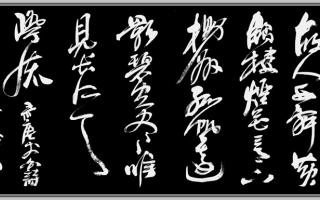 故人西辭黃
鶴樓煙花三月下
揚州孤帆遠
影碧空盡唯
見長江天
際流